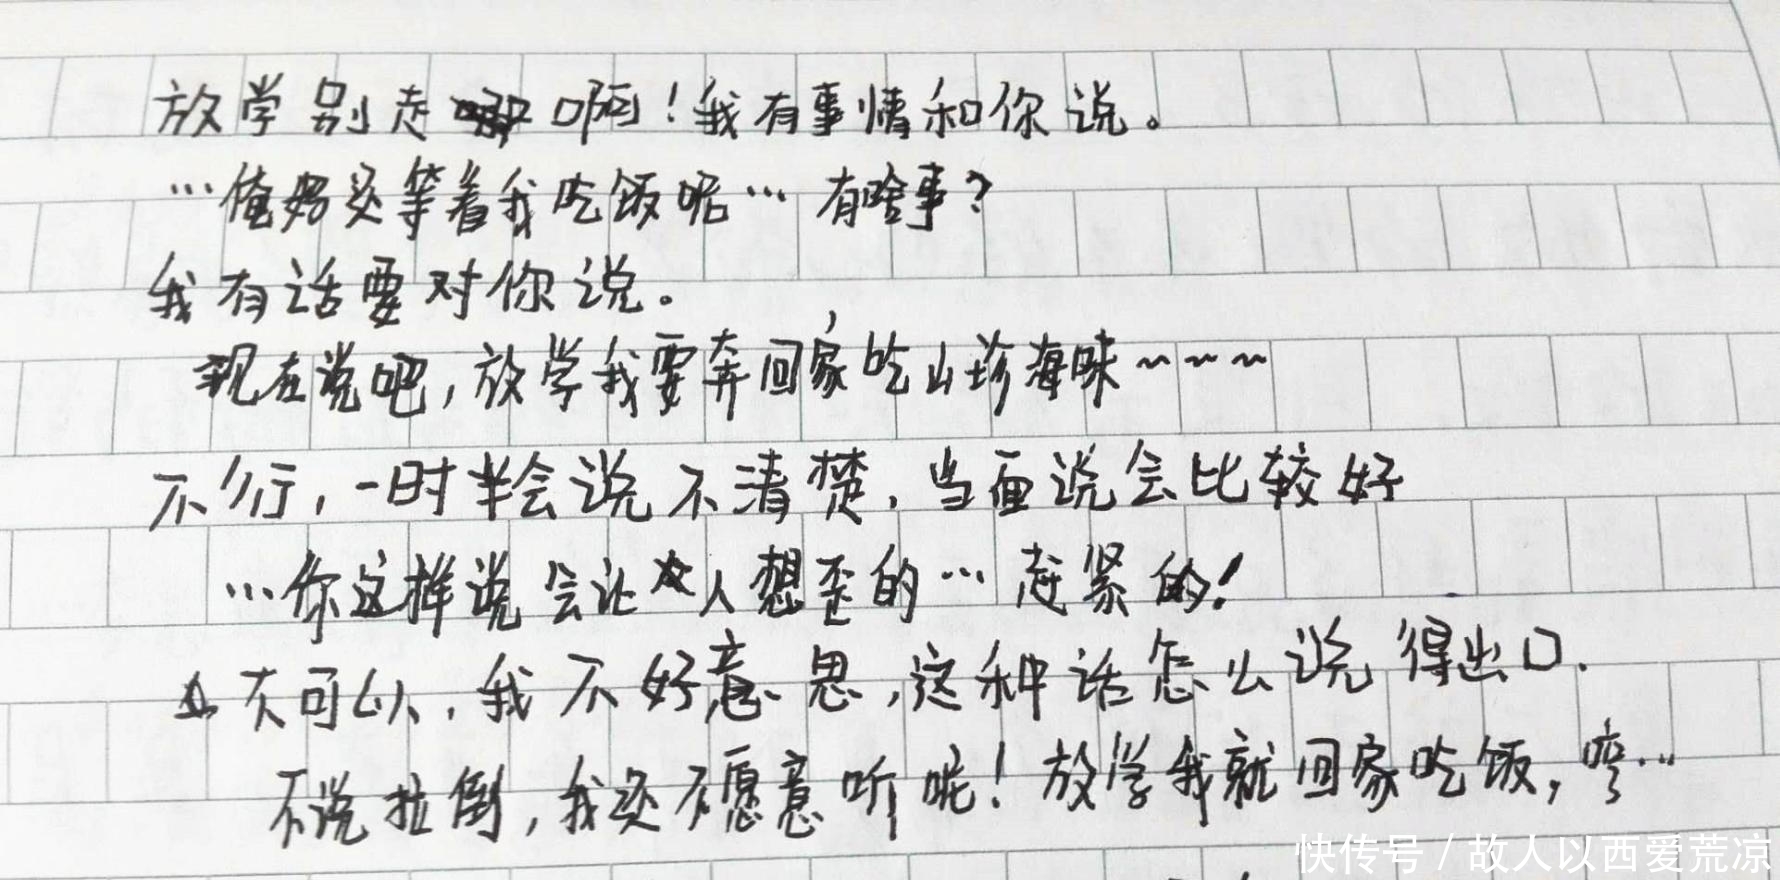 放学别走啊！我有事情和你说。
…俺妈还等着我吃饭呢… 有啥事？
我有话要对你说。
现在说吧，放学我要奔回家吃山珍海味~~~
不行，一时半会说不清楚，当面说会比较好
…你这样说会让人想歪的…赶紧的！
不可以，我不好意思，这种话怎么说得出口.
不说拉倒，我还不愿意听呢！放学我就回家吃饭，哼…
快传号/故人以西爱荒凉